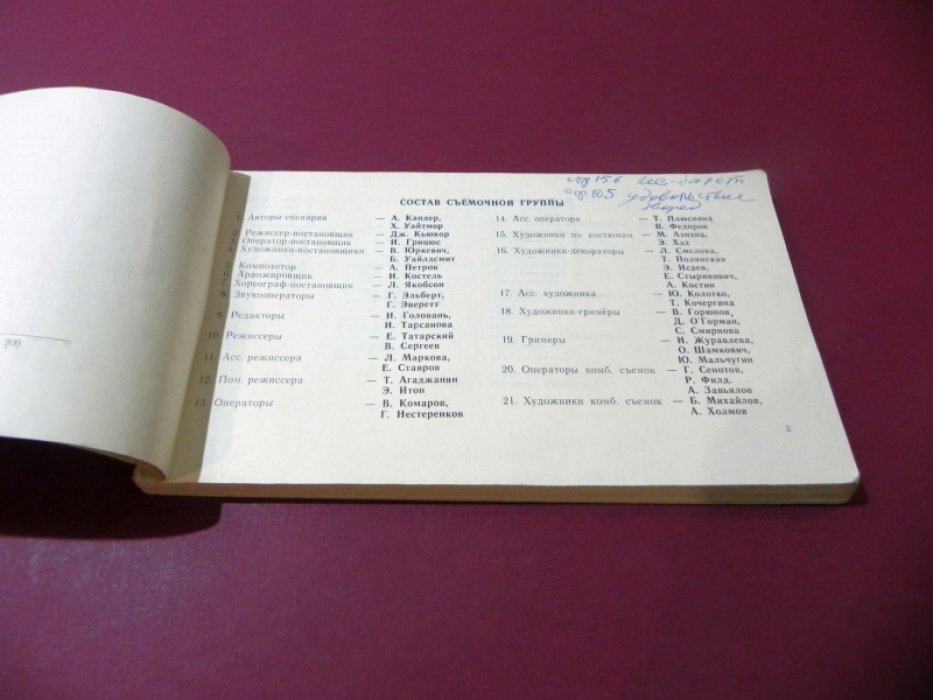 стр 156
стр 105
СОСТАВ СЪЕМОЧНОЙ ГРУППЫ
1. Авторы сценария — А. Каплер,
Х. Уайтмор
2. Режиссер-постановщик — Дж. Кьюкор
3. Оператор-постановщик — И. Грицюс
4. Художники-постановщики — В. Юркевич,
Б. Уайлдсмит
5. Композитор — А. Петров
6. Аранжировщик — И. Костель
7. Хореограф-постановщик — Л. Якобсон
8. Звукооператоры — Г. Эльберт,
Г. Эверетт
9. Редакторы — И. Головань,
И. Тарсанова
10. Режиссеры — Е. Татарский
В. Сергеев
11. Асс. режиссера — Л. Маркова,
Е. Ставров
12. Пом. режиссера — Т. Агаджанян
Э. Итон
13. Операторы — В. Комаров,
Г. Нестеренков
14. Асс. оператора — Т. Плюснина
В. Федоров
15. Художники по костюмам — М. Азизян,
Э. Хэд
16. Художники-декораторы — Л. Смелова,
Т. Полянская
Э. Исаев,
Е. Стырикович,
А. Костин
17. Асс. художника — Ю. Колотко,
Т. Кочергина
18. Художники-гримёры — В. Горюнов,
Д. О'Горман,
С. Смирнова
19. Гримеры — И. Журавлева,
О. Шамкович,
Ю. Мальчугин
20. Операторы комб. съемок — Г. Сенотов,
Р. Филд,
А. Завьялов
21. Художники комб. съемок — Б. Михайлов,
А. Холмов
3